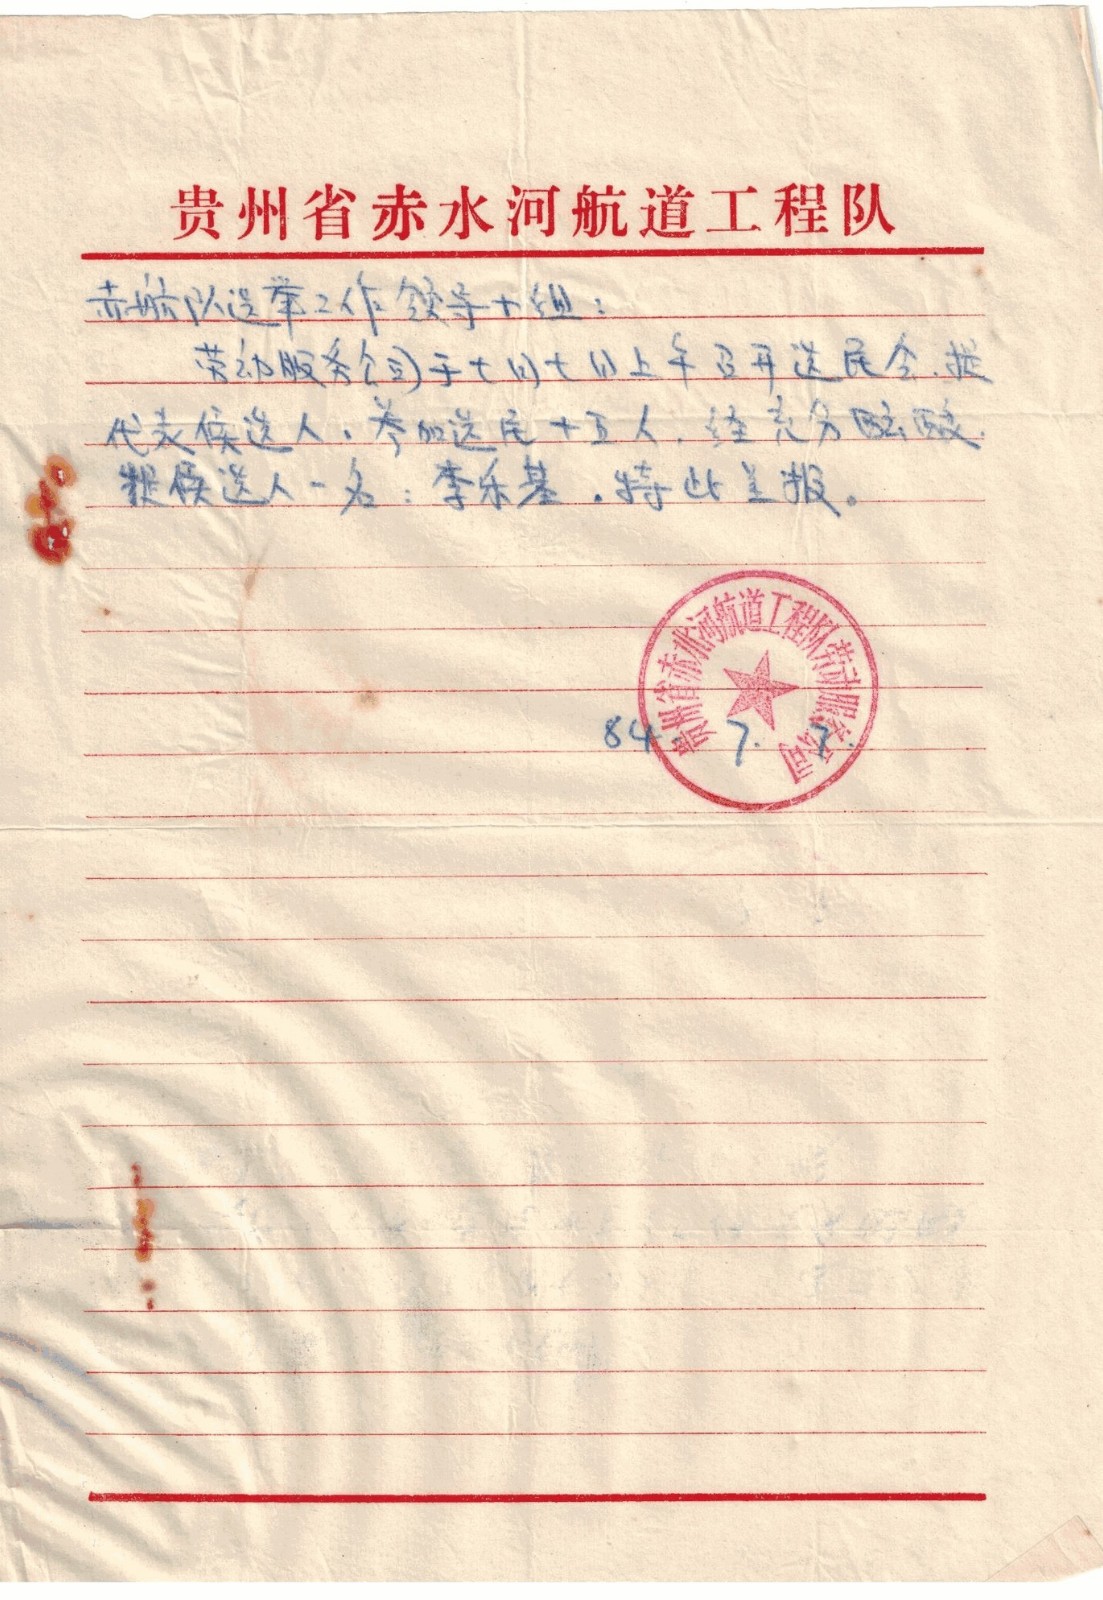 贵州省赤水河航道工程队
赤航队选举工作领导小组：
劳动服务公司于七月七日上午召开选民会，提
代表候选人。参加选民十五人，经充分酝酿，
提候选人一名：李乐基。特此呈报。
贵州省赤水河航道工程队劳动服务公司
84. 7. 7.